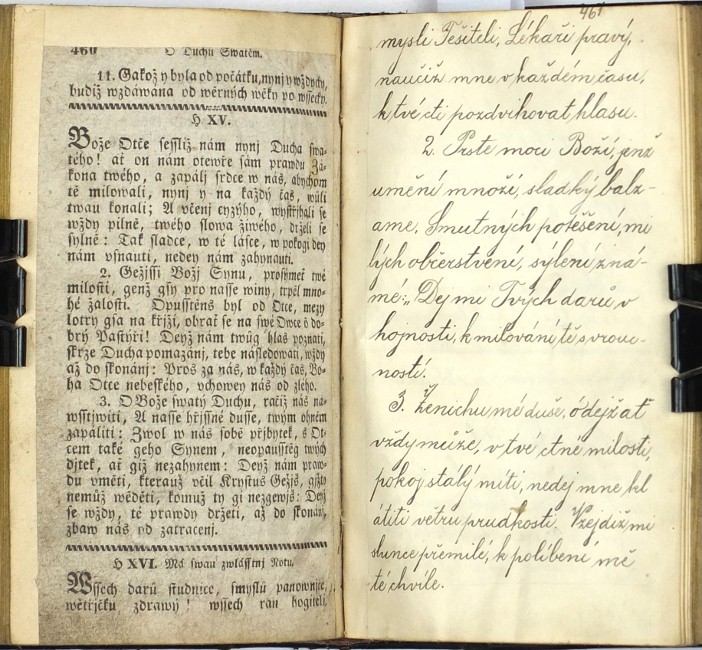 460
O Duchu Swatém.
11. Gakož y byla od počátku, nynj y wždycky,
budiž wzdáwána od wěrných wěky po wssecky.
H XV.
Bože Otče sessliž nám nynj Ducha swa-
tého! ať on nám otewře sám prawdu Zá-
kona twého, a zapálj srdce w nás, abychom
tě milowali, nynj y na každý čas, wůli
twau konali; A včenj cyzýho, wystřjhali se
wždy pilně, twého slowa žiwého, drželi se
sylně: Tak sladce, w té lásce, w pokogi dey
nám vsnauti, nedey nám zahynauti.
2. Gežjssi Božj Synu, prosýmeť twé
milosti, genž gsy pro nasse winy, trpěl mno-
hé žalosti. Opusstěns byl od Otce, mezy
lotry gsa na křjži, obrať se na swé Owce ó do-
brý Pastýři! Deyž nám twůg hlas poznati,
skrze Ducha pomazánj, tebe následowati, wždy
až do skonánj: Pros za nás, w každý čas, Bo-
ha Otce nebeského, vchowey nás od zlého.
3. O Bože swatý Duchu, račiž nás na-
wsstjwiti, A nasse hřjssné dusse, twým ohněm
zapáliti: Zwol w nás sobě přjbytek, s Ot-
cem také geho Synem, neopausstěg twých
djtek, ať giž nezahynem: Deyž nám praw-
du vměti, kterauž včil Krystus Gežjš, gjžto
nemůž wěděti, komuž ty gi nezgewjš: Dey
se wždy, té prawdy držeti, až do skonánj,
zbaw nás od zatracenj.
H XVI. Má swau zwlásstnj Notu.
Wssech darů studnice, smyslů panownjce,
wětřjčku zdrawý! wssech ran hogiteli,
461
mysli Těšiteli, Lékaři pravý,
naučiž mne v každém času,
k tvé cti pozdvihovat hlasu.
2. Prste moci Boží, jenž
umění množí, sladký balz-
ame, Smutných potěšení, mi
lých občerstvení, sýlení, zná-
mé: Dej mi Tvých darů, v
hojnosti, k milování tě s vrouc-
ností.
3. Ženichu mé duše, ó dejž ať
vždy může, v tvé ctné milosti,
pokoj stálý míti, nedej mne kl
átiti větru prudkosti. Vzejdiž mi
slunce přemilé, k políbení mě
té chvíle.